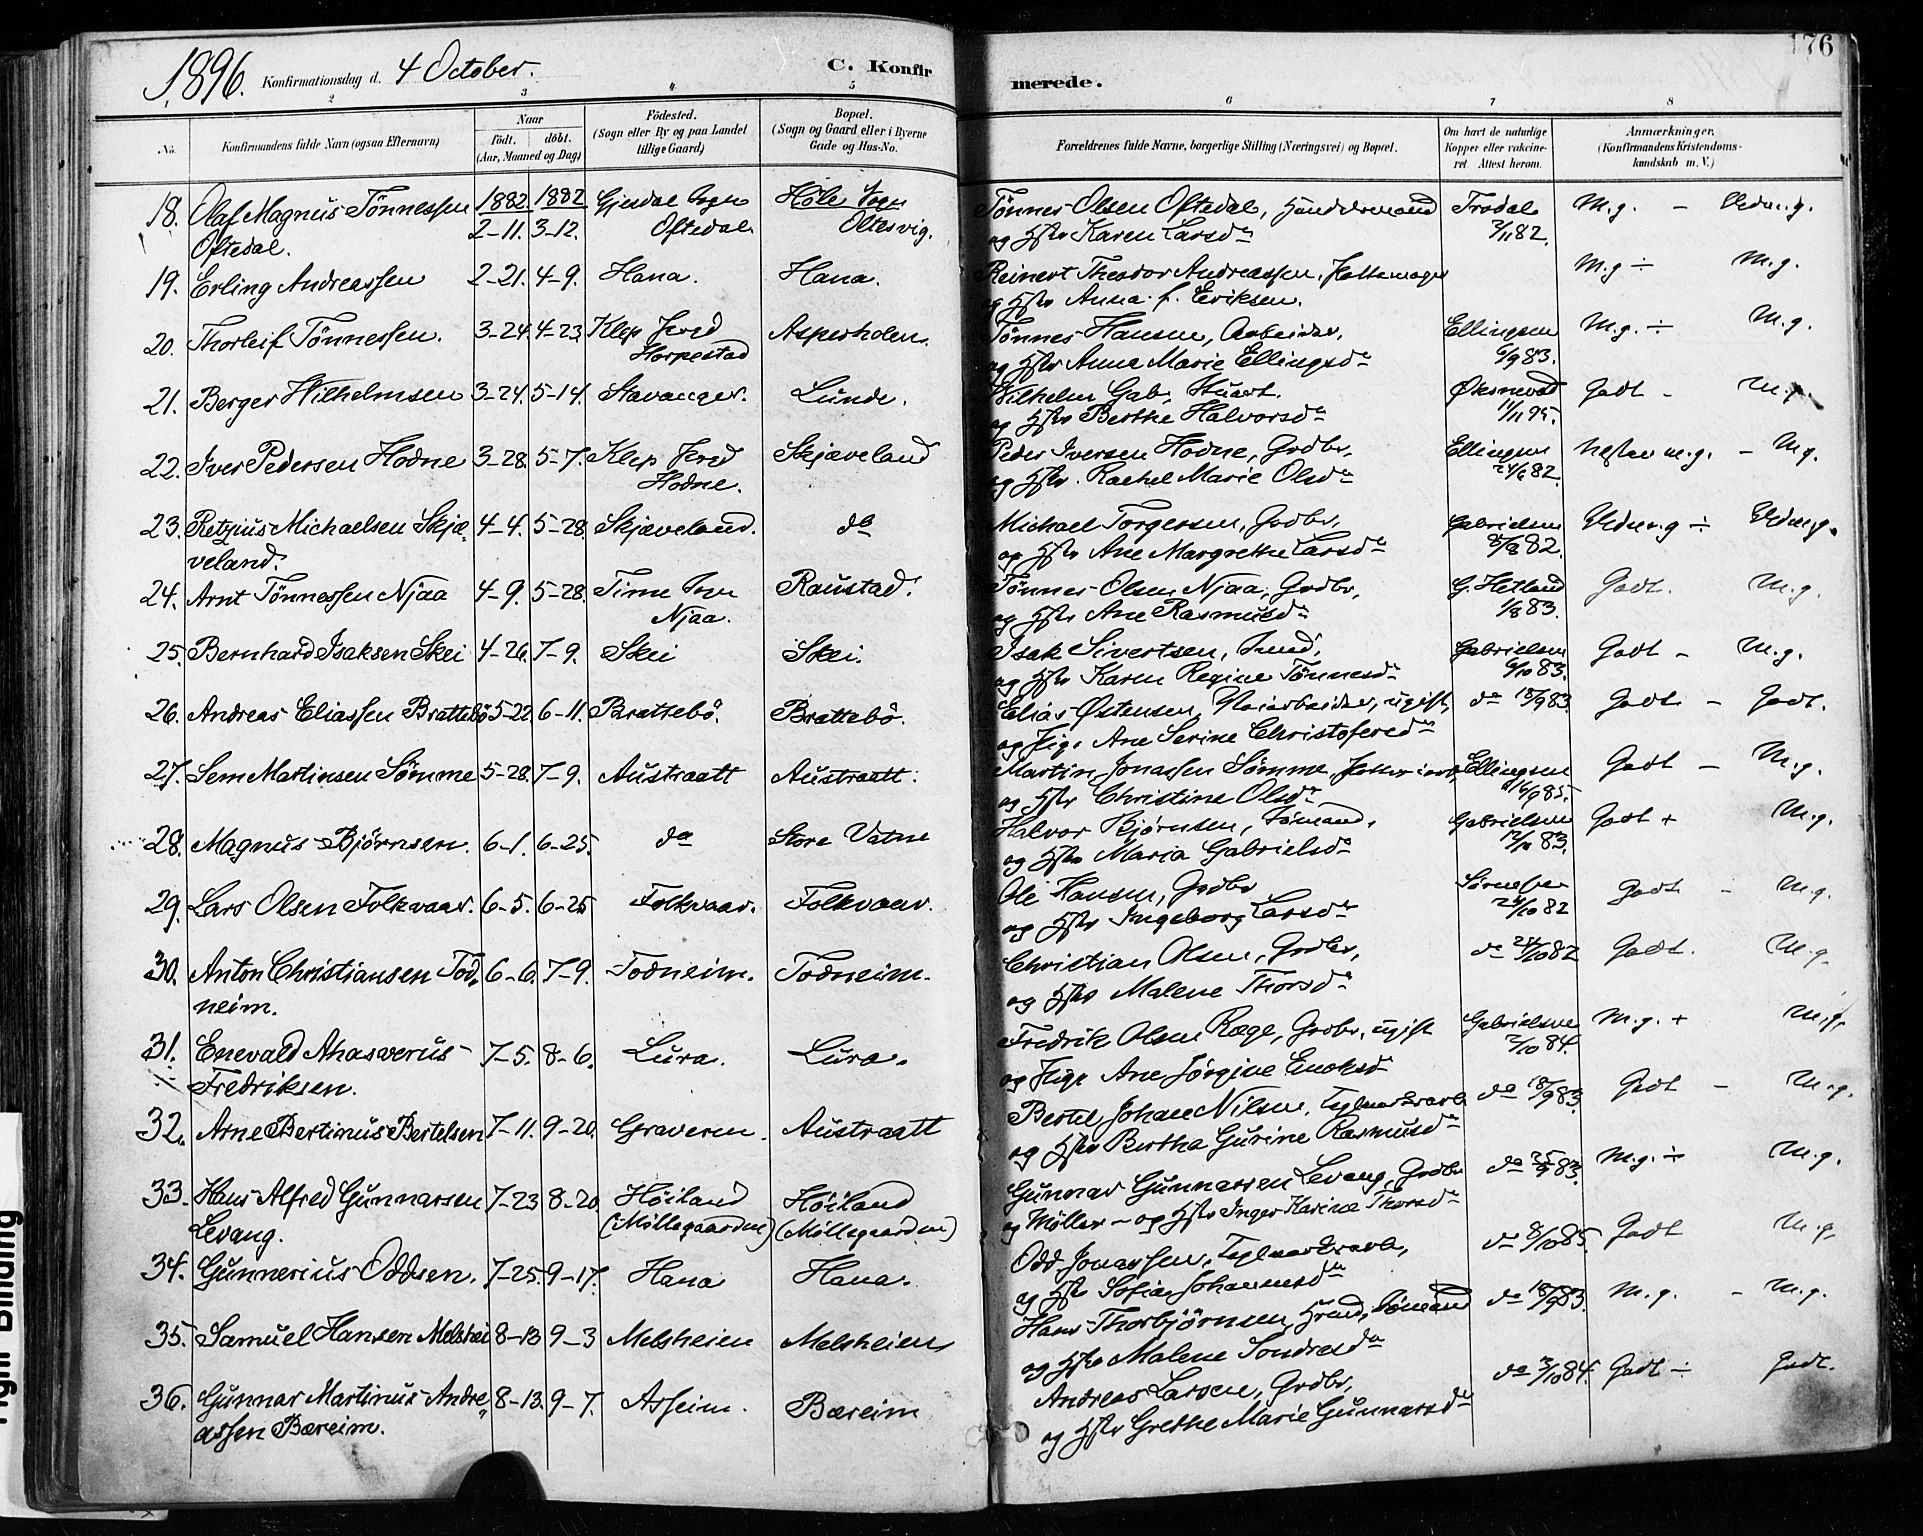 1896. Konfirmationsdag d. 4 October.
C. Konfir merede.
176
2 3 4 5 6 7 8
No.
Konfirmandens fulde Navn (ogsaa Efternavn)
Naar
födt. döbt.
(Aar, Maaned og Dag)
Födested.
(Sogn eller By og paa Landet tillige Gaard)
Bopæl.
(Sogn og Gaard eller i Byerne Gade og Hus-No.
Forældrenes fulde Navne, borgerlige Stilling (Næringsvei) og Bopæl.
Om havt de naturlige Kopper eller vakcineret. Attest herom.
Anmærkninger.
(Konfirmandens Kristendomskundskab m. V.)
18. Olaf Magnus Tönnessen 1882 1882 Gjesdal Sogn Höle Sogn Tönnes Olsen Oftedal, Trodal M.g. – Udm.g.
Oftedal. 2-11. 3-12. Oftedal. Oltesvig. og Hstr Karen Larsdn
19. Erling Andreassen 2-21. 4-9. Hana. Hana. Reinert Theodor Andreassen, Pottemager M.g ÷ M.g.
og Hstr Anna f. Eriksen.
20. Thorleif Tönnessen. 3-24. 4-23. Klep Tönnes Hansen, Arbeider, Ellingsen M.g. ÷ M.g.
Horpestad Asperholen. og Hstr Anna Marie Ellingsdn 6/9 83.
21. Berger Wilhelmsen 3-24. 5-14. Stavanger. Lunde. Wilhelm Gab. Öksnevad Godt – M.g.
og Hstr Berthe Halvorsdn 11/11 95.
22. Iver Pedersen Hodne 3-28. 5-7. Klep Skjæveland Peder Iversen Hodne, Grdbr, Ellingsen Næsten m.g. – M.g.
Hodne. og Hstr. Rachel Marie Olsdn 24/6 82.
23. Retzius Michaelsen Skjæ- 4-4. 5-28. Skjæveland. do Michael Torgersen, Grdbr, Gabrielsen Udm.g ÷ Udm.g.
veland. og Hstr Ane Margrethe Larsdn 8/8 82.
24. Arnt Tönnessen Njaa 4-9. 5-28. Time Sogn Raustad. Tönnes Olsen Njaa, Grdbr, G. Hetland Godt. M.g.
Njaa. og Hstr Ane Rasmusdn 1/8 83.
25. Bernhard Isaksen Skei 4-26. 7-9. Skei Skei. Isak Sivertsen, Smed, Gabrielsen Godt – M.g.
og Hstr Karen Regine Tönnesdn 6/10 83.
26. Andreas Eliassen Brattebö 5-22 6-11. Brattebö. Brattebö. Elias Östensen, ugift, do 18/9 83. Godt – Godt.
og Pige Ane Serine Christofersdn
27. Sem Martinsen Sömme 5-28. 7-9. Austraatt Austraatt. Martin Jonassen Sömme, Ellingsen Godt – M.g.
og Hstr Christine Olsdn 16/9 85.
28. Magnus Björnsen. 6-1. 6-25. do Store Vatne Halvor Bjørnsen, Sömand, Gabrielsen Godt + M.g.
og Hstr Maria Gabrielsdn 12/10 83.
29. Lars Olsen Folkvaar. 6-5. 6-25 Folkvaar. Folkvaar. Ole Hansen, Grdbr Godt – M.g.
og Hstr Ingeborg Larsdn 24/10 82
30. Anton Christiansen Tod, 6-6. 7-9. Todneim. Todneim. Christian Olsen, Grdbr, do 24/10 82 Godt. M.g.
neim. og Hstr Malene Thorsdn
31. Enevald Ahasverus 7-5. 8-6. Lura. Lura. Fredrik Olsen Rage, Grdbr, ugift Gabrielsen M.g. + M.g.
Fredriksen. og Pige Ane Jörgine Enoksd 2/10 84.
32. Arne Bertinus Bertelsen 7-11. 9-20. Graveren. Austraatt Bertel Johan Nilsen, Teglværksarb do 18/9 83. Godt – M.g.
og Hstr Bertha Gurine Rasmusdn
33. Hans Alfred Gunnarsen 7-23 8-20. Höiland Höiland Gunnar Gunnarsen Levang, Grdbr do 25/9 83. M.g. ÷ M.g.
Levang. (Möllegaarden) (Möllegaarden) og Möller – og Hstr Inger Karine Thorsdn
34. Gunnerius Oddsen. 7-25. 9-17. Hana Hana. Odd Jonassen, Teglværksarb, do 8/10 85. Godt M.g.
og Hstr Sofie Johannesdn
35. Samuel Hansen Melshei 8-13 9-3 Melsheien Melsheien Hans Thorbjörnsen, Sömand do 18/9 83. M.g. – M.g.
og Hstr Malene Sondresdn
36. Gunnar Martinus Andre- 8-13. 9-7. Asheim. Bæreim Andreas Larsen, Grdbr, do 3/10 84. Godt ÷ Godt.
assen Bæreim. og Hstr Grethe Marie Gunnarsdn